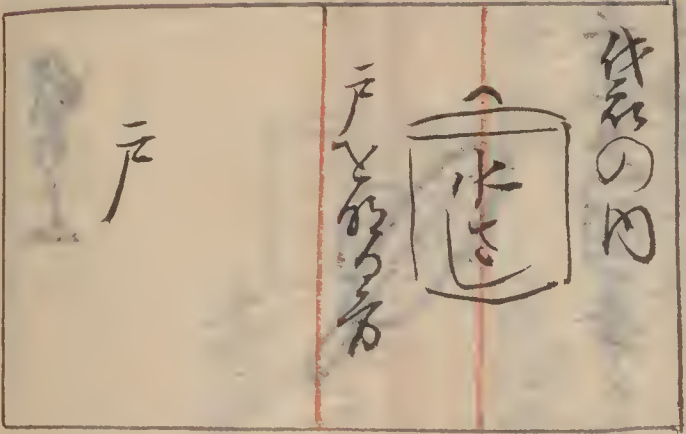 袋の内
水さし
戸を明る方
戸